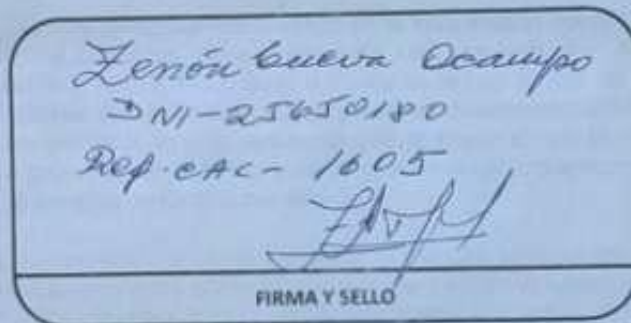 Zenón Cueva Ocampo
DNI-25650180
Ref. CAC- 1605
FIRMA Y SELLO